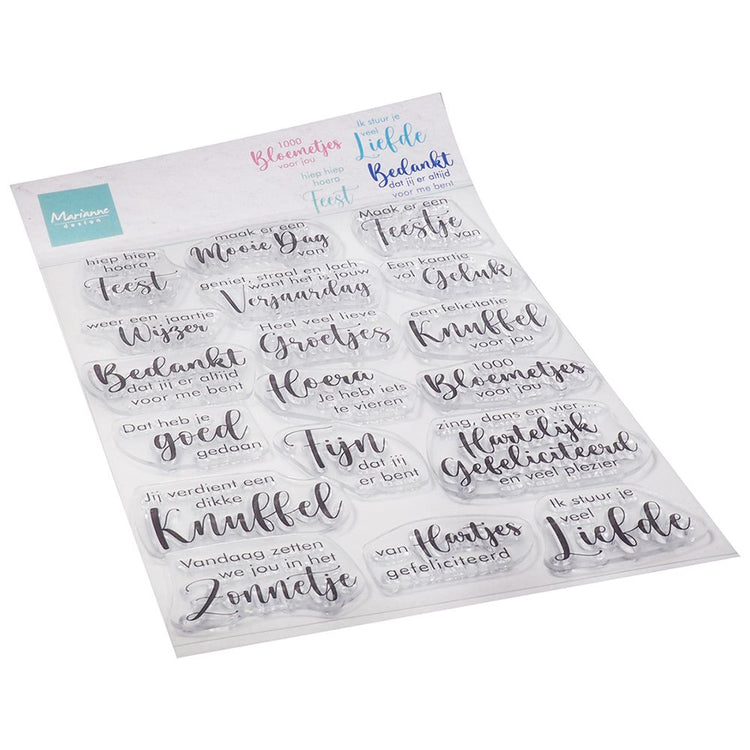 Marianne
design
1000
Bloemetjes
voor jou
hiep hiep
hoera
Feest
Ik stuur je
veel
Liefde
Bedankt
dat jij er altijd
voor me bent
hiep hiep
hoera
Feest
maak er een
Mooie Dag
van
Maak er een
Feestje
van
geniet, straal en lach
want het is jouw
Verjaardag
Een kaartje
vol Geluk
weer een jaartje
Wijzer
Heel veel lieve
Groetjes
een felicitatie
Knuffel
voor jou
Bedankt
dat jij er altijd
voor me bent
Hoera
Je hebt iets
te vieren
1000
Bloemetjes
voor jou
Dat heb je
goed
gedaan
Fijn
dat jij
er bent
zing, dans en vier...
Hartelijk
Gefeliciteerd
en veel plezier
Jij verdient een
dikke
Knuffel
van Hartjes
gefeliciteerd
Ik stuur je
veel
Liefde
Vandaag zetten
we jou in het
Zonnetje